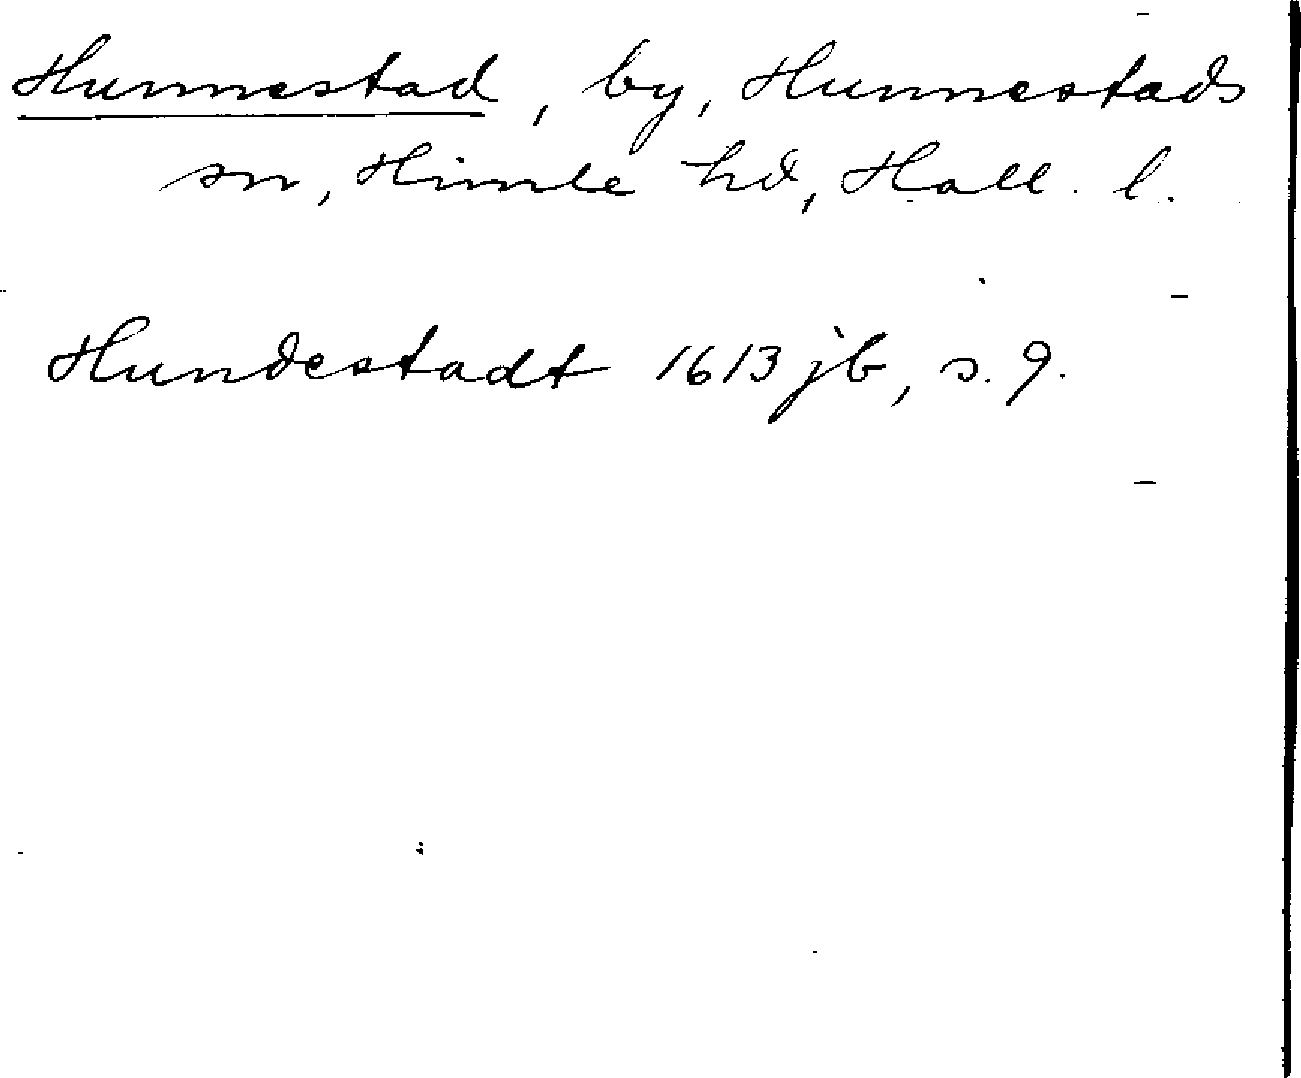 Hunnestad, by, Hunnestads
sn, Himle hd, Hall. l.
Hundestadt 1613 jb, s. 9.